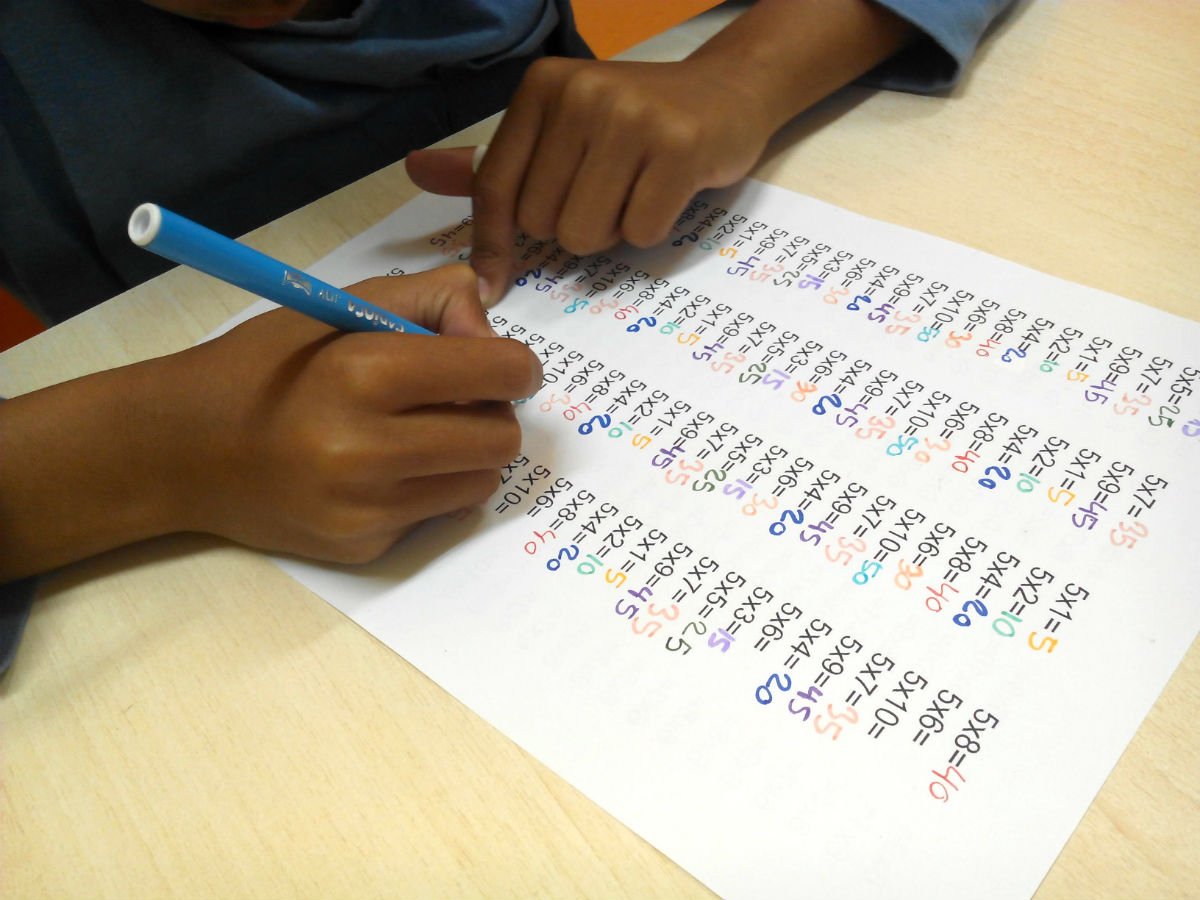 5x5=25
5x7=35
5x9=45
5x1=5
5x2=10
5x4=20
5x8=40
5x6=30
5x10=50
5x7=35
5x9=45
5x4=20
5x6=30
5x3=15
5x5=25
5x7=35
5x9=45
5x1=5
5x2=10
5x4=20
5x8=
5x7=35
5x9=45
5x1=5
5x2=10
5x4=20
5x8=40
5x6=30
5x10=50
5x7=35
5x9=45
5x4=20
5x6=30
5x3=15
5x5=25
5x7=35
5x9=45
5x1=5
5x2=10
5x4=20
5x8=40
5x6=30
5x10=50
5x7=35
x9=45
x4=20
x6=
x9=45
5x1=5
5x2=10
5x4=20
5x8=40
5x6=30
5x10=50
5x7=35
5x9=45
5x4=20
5x6=30
5x3=15
5x5=25
5x7=35
5x9=45
5x1=5
5x2=10
5x4=20
5x8=40
5x6=30
5x10
5x8=40
5x6=
5x10=
5x7=35
5x9=45
5x4=20
5x6=
5x3=15
5x5=25
5x7=35
5x9=45
5x1=5
5x2=10
5x4=20
5x8=40
5x6=
5x10=
5x7
CARIOCA JOY